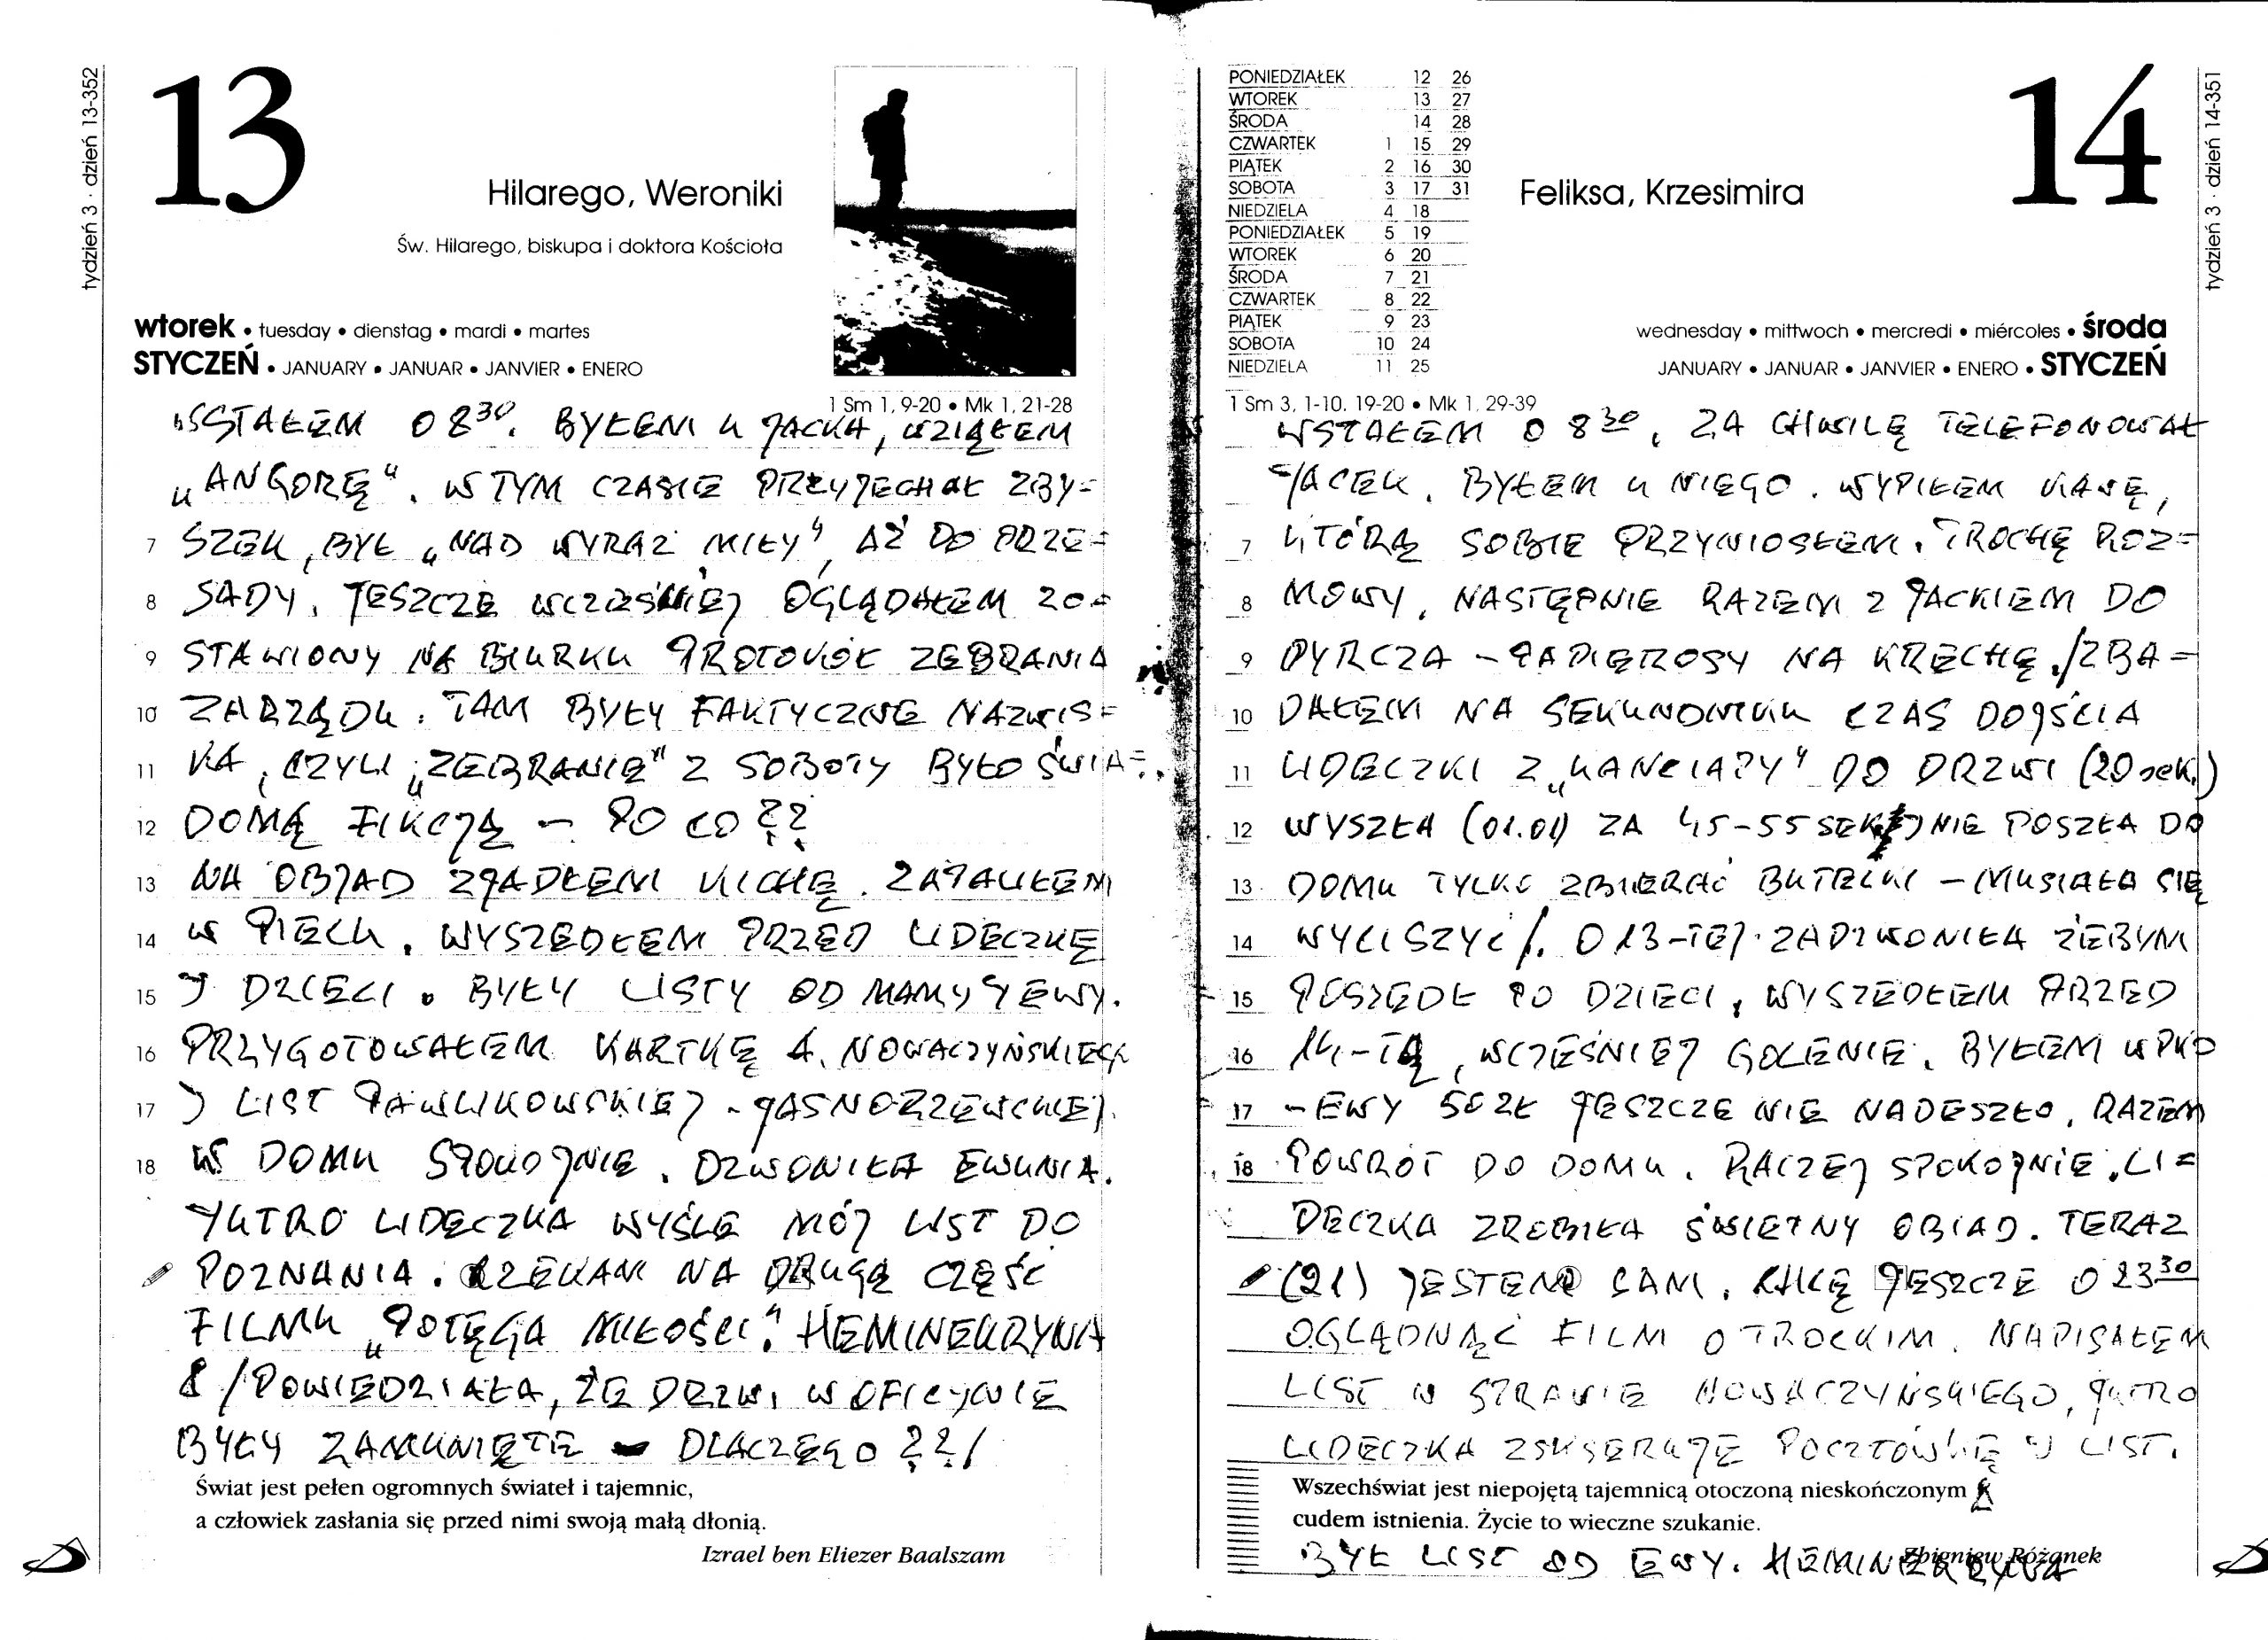 tydzień 3 · dzień 13-352
13
Hilarego, Weroniki
Św. Hilarego, biskupa i doktora Kościoła
wtorek • tuesday • dienstag • mardi • martes
STYCZEŃ • JANUARY • JANUAR • JANVIER • ENERO
1 Sm 1, 9-20 • Mk 1, 21-28
WSTAŁEM O 8³⁰. BYŁEM U JACKA, WZIĄŁEM
„ANGORĘ". W TYM CZASIE PRZYJECHAŁ ZBY=
7 SZEK, BYŁ „NAD WYRAZ MIŁY", AŻ DO PRZE=
8 SADY. JESZCZE WCZEŚNIEJ OGLĄDAŁEM ZO=
9 STAWIONY NA BIURKU PROTOKÓŁ ZEBRANIA
10 ZARZĄDU. TAM BYŁY FAKTYCZNE NAZWIS=
11 KA, CZYLI „ZEBRANIE" Z SOBOTY BYŁO ŚWIA=
12 DOMĄ FIKCJĄ – PO CO ??
13 NA OBJAD ZJADŁEM KICHĘ. ZAPALIŁEM
14 W PIECU. WYSZEDŁEM PRZED LIDECZKĘ
15 J DZIECI. BYŁY LISTY OD MAMY J EWY.
16 PRZYGOTOWAŁEM KARTKĘ A. NOWACZYŃSKIEGO
17 J LIST PAWLIKOWSKIEJ - JASNORZEWSKIEJ.
18 W DOMU SPOKOJNIE. DZWONIŁA EWUNIA.
JUTRO LIDECZKA WYŚLE MÓJ LIST DO
POZNANIA. CZEKAM NA DRUGĄ CZĘŚĆ
FILMU „POTĘGA MIŁOŚCI". HEMINEKRYNA
8 /POWIEDZIAŁA, ŻE DRZWI W OFICYNIE
BYŁY ZAMKNIĘTE – DLACZEGO ??/
Świat jest pełen ogromnych świateł i tajemnic,
a człowiek zasłania się przed nimi swoją małą dłonią.
Izrael ben Eliezer Baalszam
PONIEDZIAŁEK 12 26
WTOREK 13 27
ŚRODA 14 28
CZWARTEK 1 15 29
PIĄTEK 2 16 30
SOBOTA 3 17 31
NIEDZIELA 4 18
PONIEDZIAŁEK 5 19
WTOREK 6 20
ŚRODA 7 21
CZWARTEK 8 22
PIĄTEK 9 23
SOBOTA 10 24
NIEDZIELA 11 25
Feliksa, Krzesimira
14
tydzień 3 · dzień 14-351
wednesday • mittwoch • mercredi • miércoles • środa
JANUARY • JANUAR • JANVIER • ENERO • STYCZEŃ
1 Sm 3, 1-10. 19-20 • Mk 1, 29-39
WSTAŁEM O 8³⁰, ZA CHWILĘ TELEFONOWAŁ
JACEK. BYŁEM U NIEGO. WYPIŁEM KAWĘ,
7 KTÓRĄ SOBIE PRZYNIOSŁEM. TROCHĘ ROZ=
8 MOWY, NASTĘPNIE RAZEM Z JACKIEM DO
9 PYRCZA – PAPIEROSY NA KRECHĘ. /ZBA=
10 DAŁEM NA SEKUNDNIKU CZAS DOJŚCIA
11 LIDECZKI Z „KANCIAPY" DO DRZWI (20 sek.)
12 WYSZŁA (01.01) ZA 45-55 SEK) NIE POSZŁA DO
13 DOMU TYLKO ZBIERAĆ BUTELKI – MUSIAŁA SIĘ
14 WYCISZYĆ/. O 13-TEJ ZADZWONIŁA ŻEBYM
15 POSZEDŁ PO DZIECI, WYSZEDŁEM PRZED
16 14-TĄ, WCZEŚNIEJ GOLENIE. BYŁEM W PKO
17 – EWY 50 ZŁ JESZCZE NIE NADESZŁO. RAZEM
18 POWRÓT DO DOMU. RACZEJ SPOKOJNIE. LI=
DECZKA ZROBIŁA ŚWIETNY OBIAD. TERAZ
(21) JESTEM SAM. CHCĘ JESZCZE O 23³⁰
OGLĄDNĄĆ FILM O TROCKIM. NAPISAŁEM
LIST W SPRAWIE NOWACZYŃSKIEGO, JUTRO
LIDECZKA ZSKSERUJE POCZTÓWKĘ J LIST.
Wszechświat jest niepojętą tajemnicą otoczoną nieskończonym
cudem istnienia. Życie to wieczne szukanie.
Zbigniew Różanek
BYŁ LIST OD EWY. HEMINEKRYNA